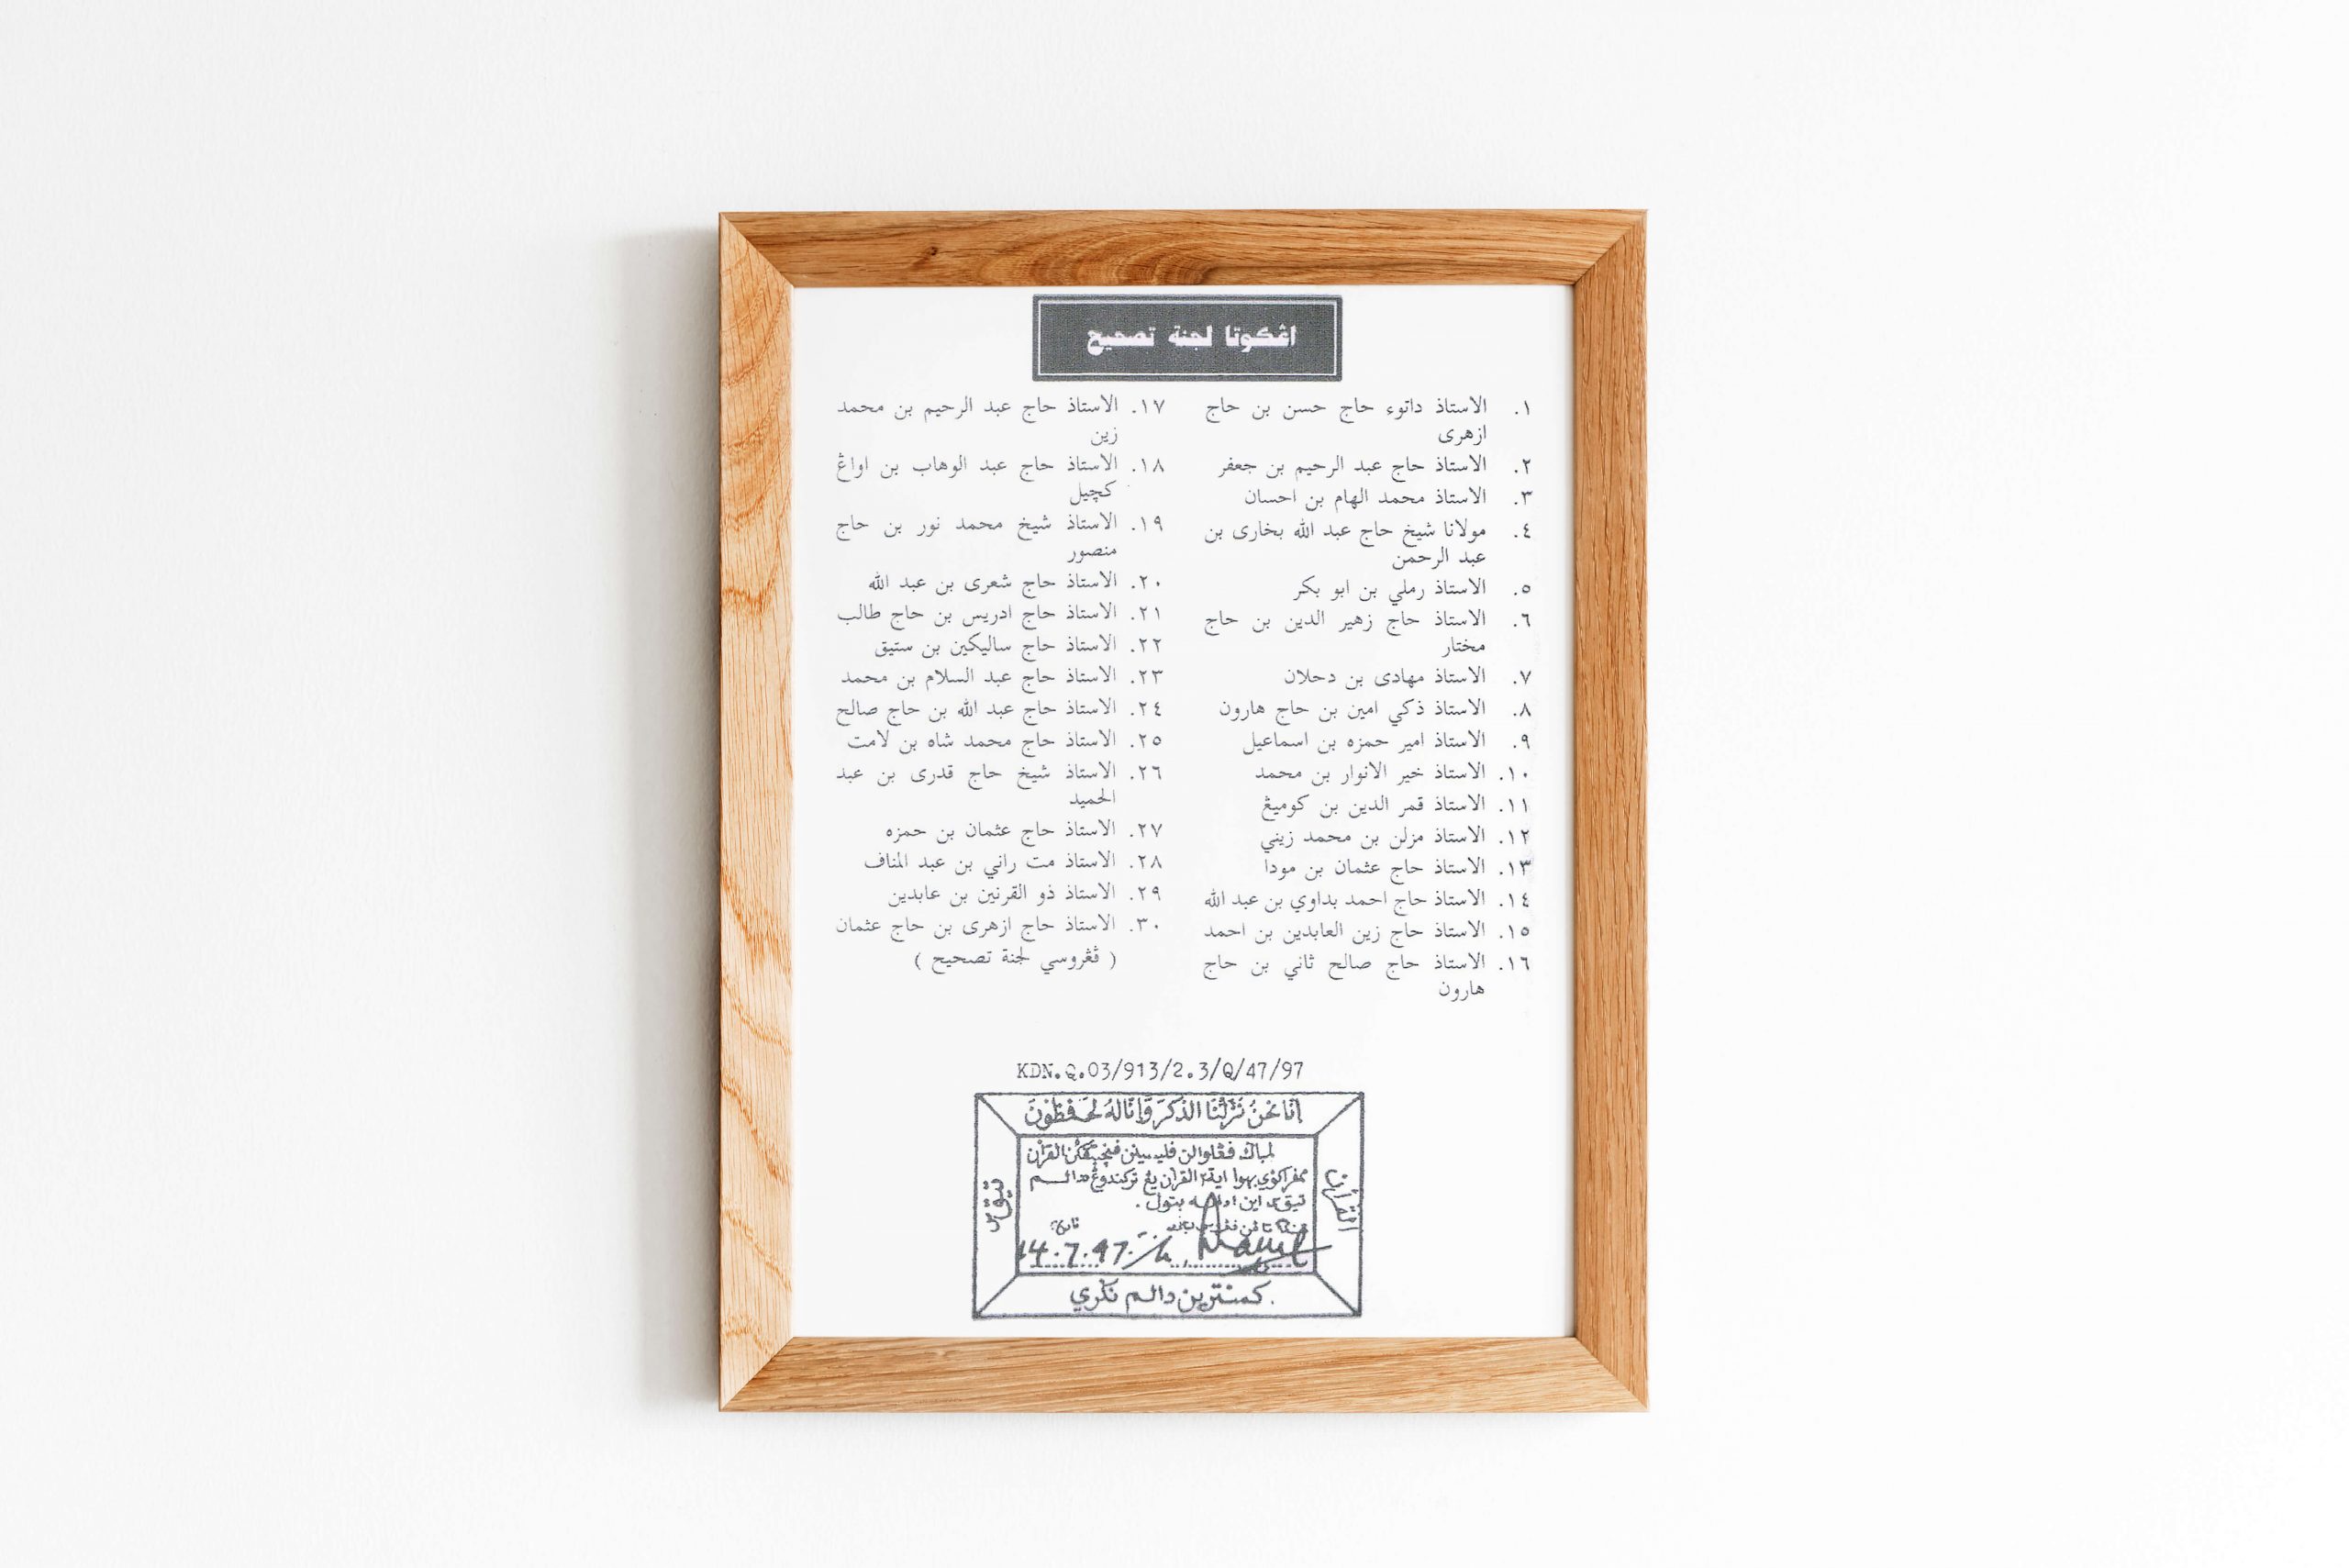 اڠكوتا لجنة تصحيح
١. الاستاذ داتوء حاج حسن بن حاج
ازهرى
٢. الاستاذ حاج عبد الرحيم بن جعفر
٣. الاستاذ محمد الهام بن احسان
٤. مولانا شيخ حاج عبد الله بخارى بن
عبد الرحمن
٥. الاستاذ رملي بن ابو بكر
٦. الاستاذ حاج زهير الدين بن حاج
مختار
٧. الاستاذ مهادى بن دحلان
٨. الاستاذ ذكي امين بن حاج هارون
٩. الاستاذ امير حمزه بن اسماعيل
١٠. الاستاذ خير الانوار بن محمد
١١. الاستاذ قمر الدين بن كوميڠ
١٢. الاستاذ مزلن بن محمد زيني
١٣. الاستاذ حاج عثمان بن مودا
١٤. الاستاذ حاج احمد بداوي بن عبد الله
١٥. الاستاذ حاج زين العابدين بن احمد
١٦. الاستاذ حاج صالح ثاني بن حاج
هارون
١٧. الاستاذ حاج عبد الرحيم بن محمد
زين
١٨. الاستاذ حاج عبد الوهاب بن اواڠ
كچيل
١٩. الاستاذ شيخ محمد نور بن حاج
منصور
٢٠. الاستاذ حاج شعرى بن عبد الله
٢١. الاستاذ حاج ادريس بن حاج طالب
٢٢. الاستاذ حاج ساليكين بن ستيق
٢٣. الاستاذ حاج عبد السلام بن محمد
٢٤. الاستاذ حاج عبد الله بن حاج صالح
٢٥. الاستاذ حاج محمد شاه بن لامت
٢٦. الاستاذ شيخ حاج قدرى بن عبد
الحميد
٢٧. الاستاذ حاج عثمان بن حمزه
٢٨. الاستاذ مت راني بن عبد المناف
٢٩. الاستاذ ذو القرنين بن عابدين
٣٠. الاستاذ حاج ازهرى بن حاج عثمان
( ڤڠروسي لجنة تصحيح )
KDN.Q.03/913/2.3/Q/47/97
اِنَّا نَحْنُ نَزَّلْنَا الذِّكْرَ وَاِنَّا لَهُ لَحَـٰفِظُوْنَ
القرآن
بهوا اية٢ القرآن يڠ تركندوڠ دالم
اين اداله بتول.
تاريخ
14.7.97
كمنترين دالم نڬري.